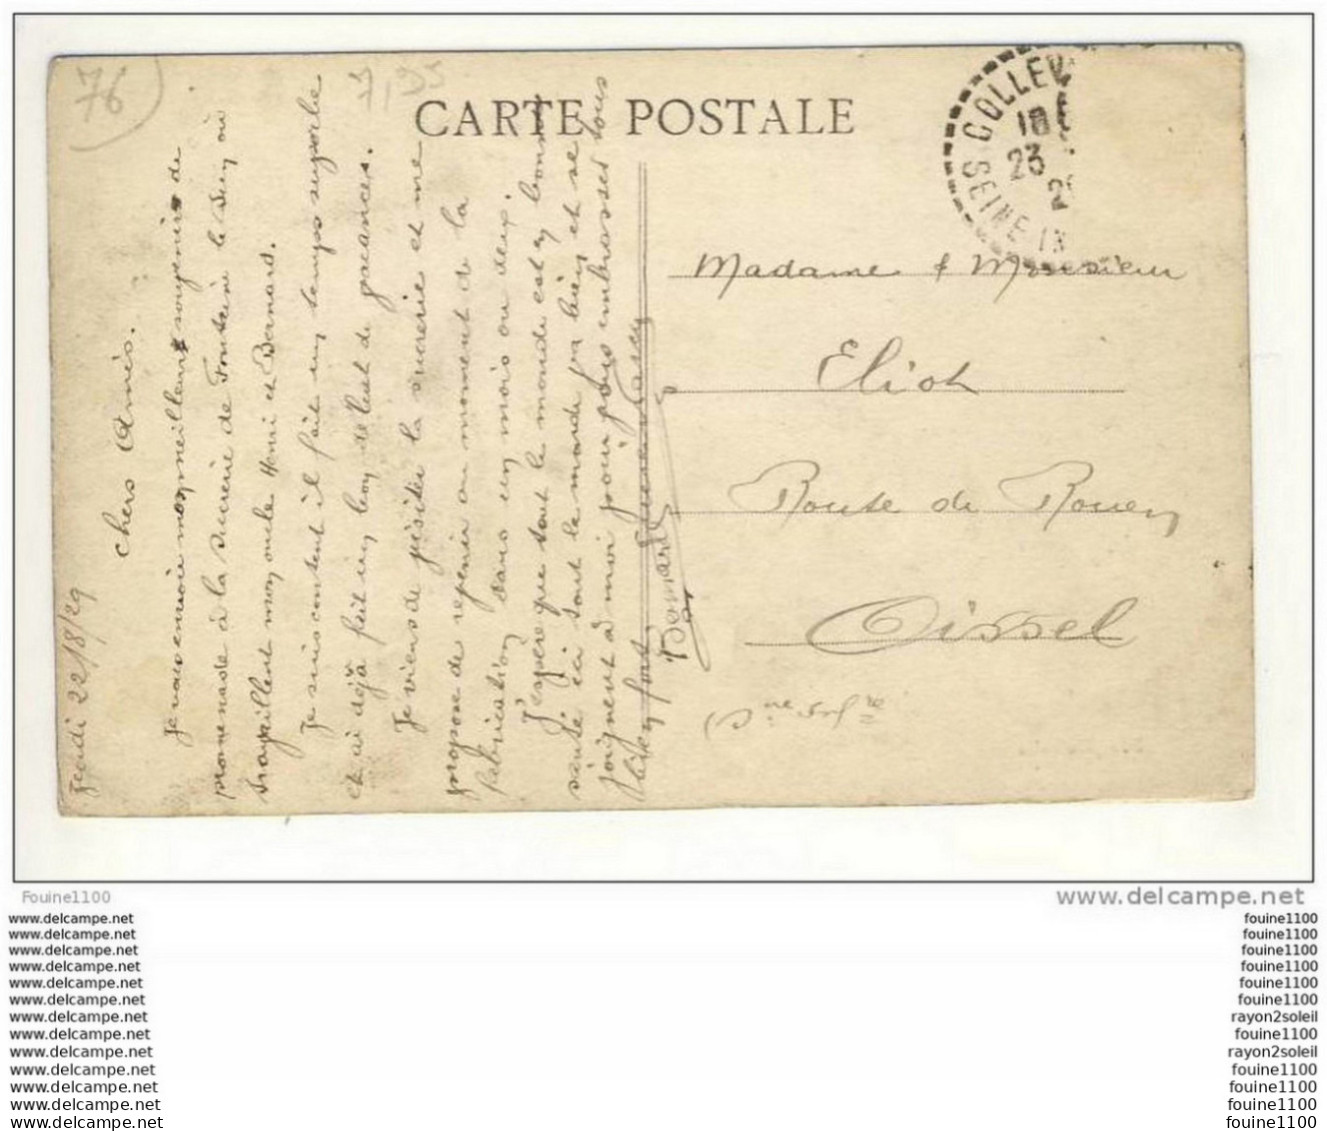 76
7,95
CARTE POSTALE
COLLEV
SEINE IN
18
23
2
Jeudi 22/8/29
Chers Amis.
Je vous envoie mes meilleurs souvenirs de
promenade à la Sucrerie de Fontaine le Dun où
travaillent mon oncle Henri et Bernard.
Je suis content il fait un temps superbe
et ai déjà fait un bon début de vacances.
Je viens de visiter la sucrerie et me
propose de revenir au moment de la
fabrication dans un mois ou deux.
J'espère que tout le monde est en bonne
santé ici tout le monde va bien et se
joignent à moi pour vous embrasser tous
bien fort
Bernard
Madame & Monsieur
Eliot
Route de Rouen
Oissel
Fouine1100
www.delcampe.net
www.delcampe.net
www.delcampe.net
www.delcampe.net
www.delcampe.net
www.delcampe.net
www.delcampe.net
www.delcampe.net
www.delcampe.net
www.delcampe.net
www.delcampe.net
www.delcampe.net
www.delcampe.net
www.delcampe.net
fouine1100
fouine1100
fouine1100
fouine1100
fouine1100
fouine1100
rayon2soleil
fouine1100
rayon2soleil
fouine1100
fouine1100
fouine1100
fouine1100